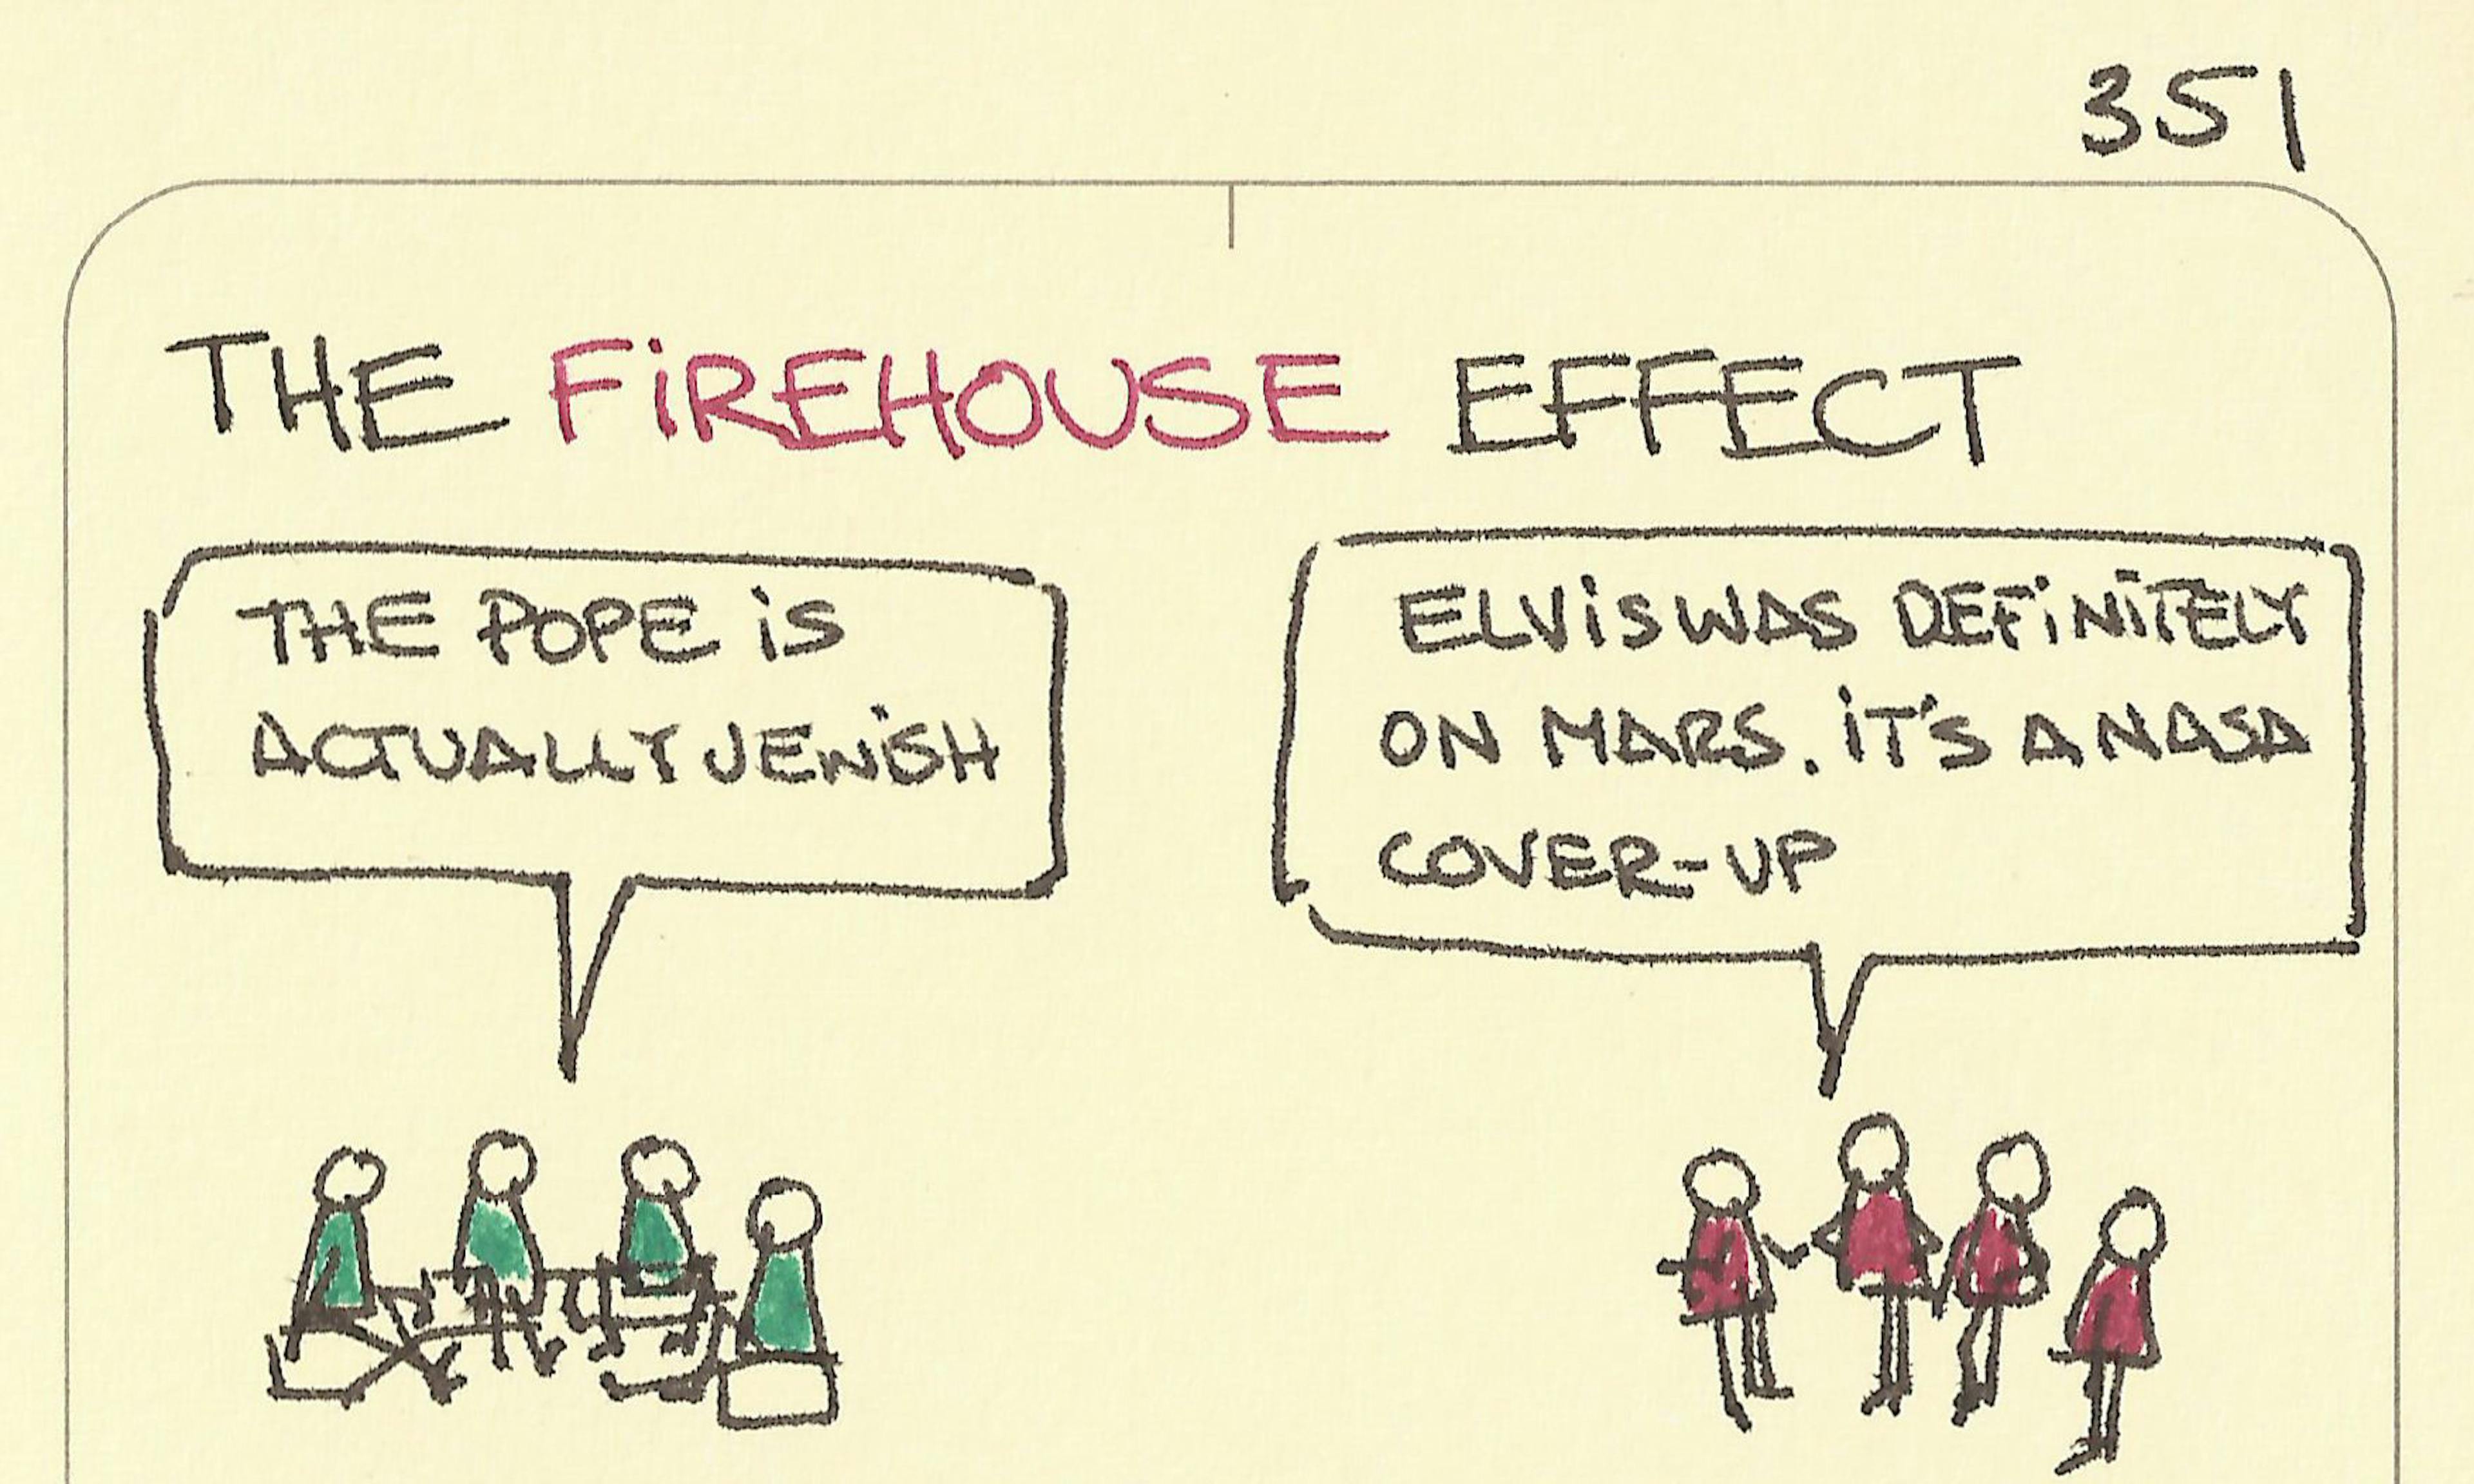 351
THE FiREHOUSE EFFECT
THE POPE iS
ACTUALLY JEWiSH
ELViS WAS DEFiNiTELY
ON MARS. iT'S A NASA
COVER-UP